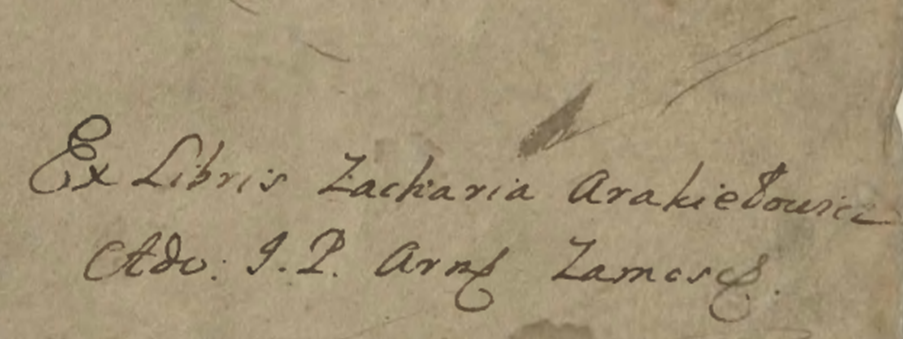 Ex Libris Zacharia Arakiełowicz
Adv: I. P. Arm Zamosc.